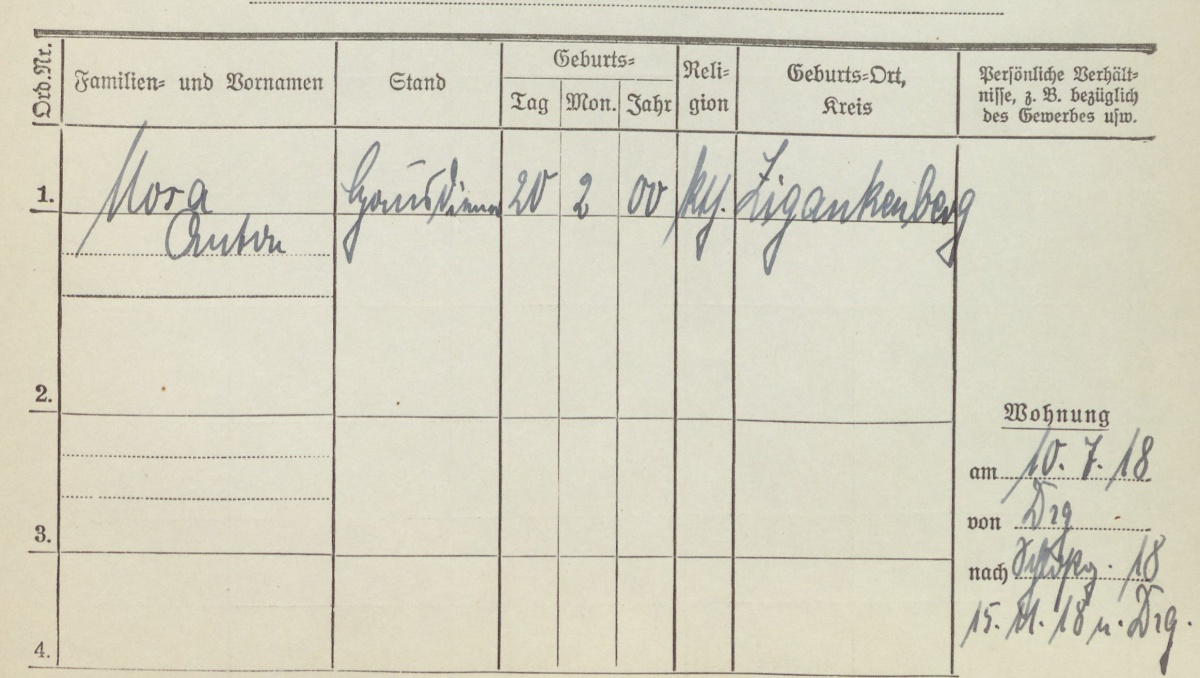 Ord.Nr. Familien- und Vornamen Stand Geburts- Tag Mon. Jahr Reli-gion Geburts-Ort, Kreis Persönliche Verhält-
nisse, z. B. bezüglich
des Gewerbes usw.
1. Mora Hausdiener 20 2 00 kth. Zigankenberg
Anton
2.
Wohnung
am 10. 7. 18
3.
von Dzg
nach 18
15. 11. 18 n. Dzg.
4.